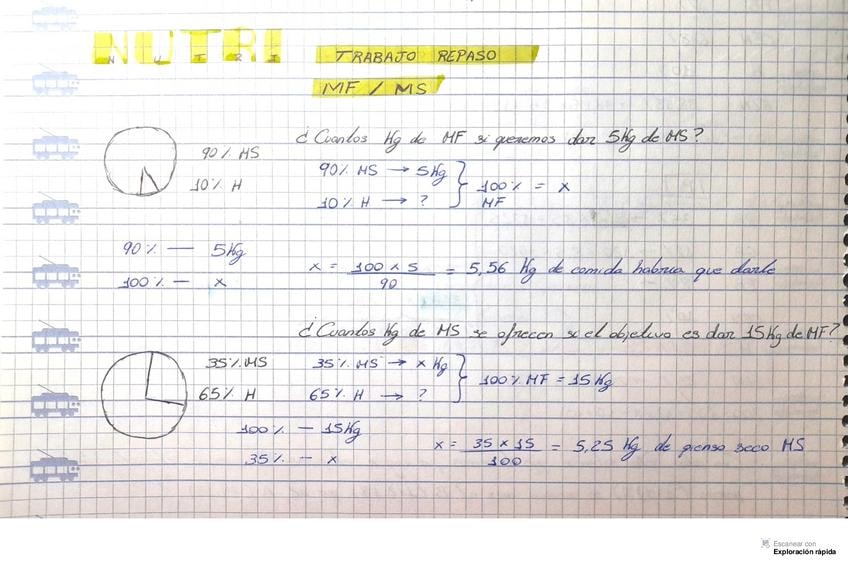 NUTRI
NUTRI
TRABAJO REPASO
MF / MS
¿Cuantos Kg de MF si queremos dar 5Kg de MS?
90% MS
10% H
90% MS → 5Kg
10% H → ?
100% = x
MF
90% — 5Kg
100% — x
x = 100 x 5 / 90 = 5,56 Kg de comida habria que darle
¿Cuantos Kg de MS se ofrecen si el objetivo es dar 15Kg de MF?
35% MS
65% H
35% MS → x Kg
65% H → ?
100% MF = 15Kg
100% — 15Kg
35% — x
x = 35 x 15 / 100 = 5,25 Kg de pienso seco MS
Escanear con
Exploración rápida